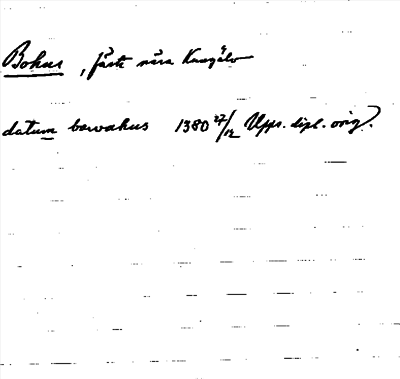 Bohus, fäste nära Kungälv
datum bawahus 1380 27/12 Upps. dipl. orig.